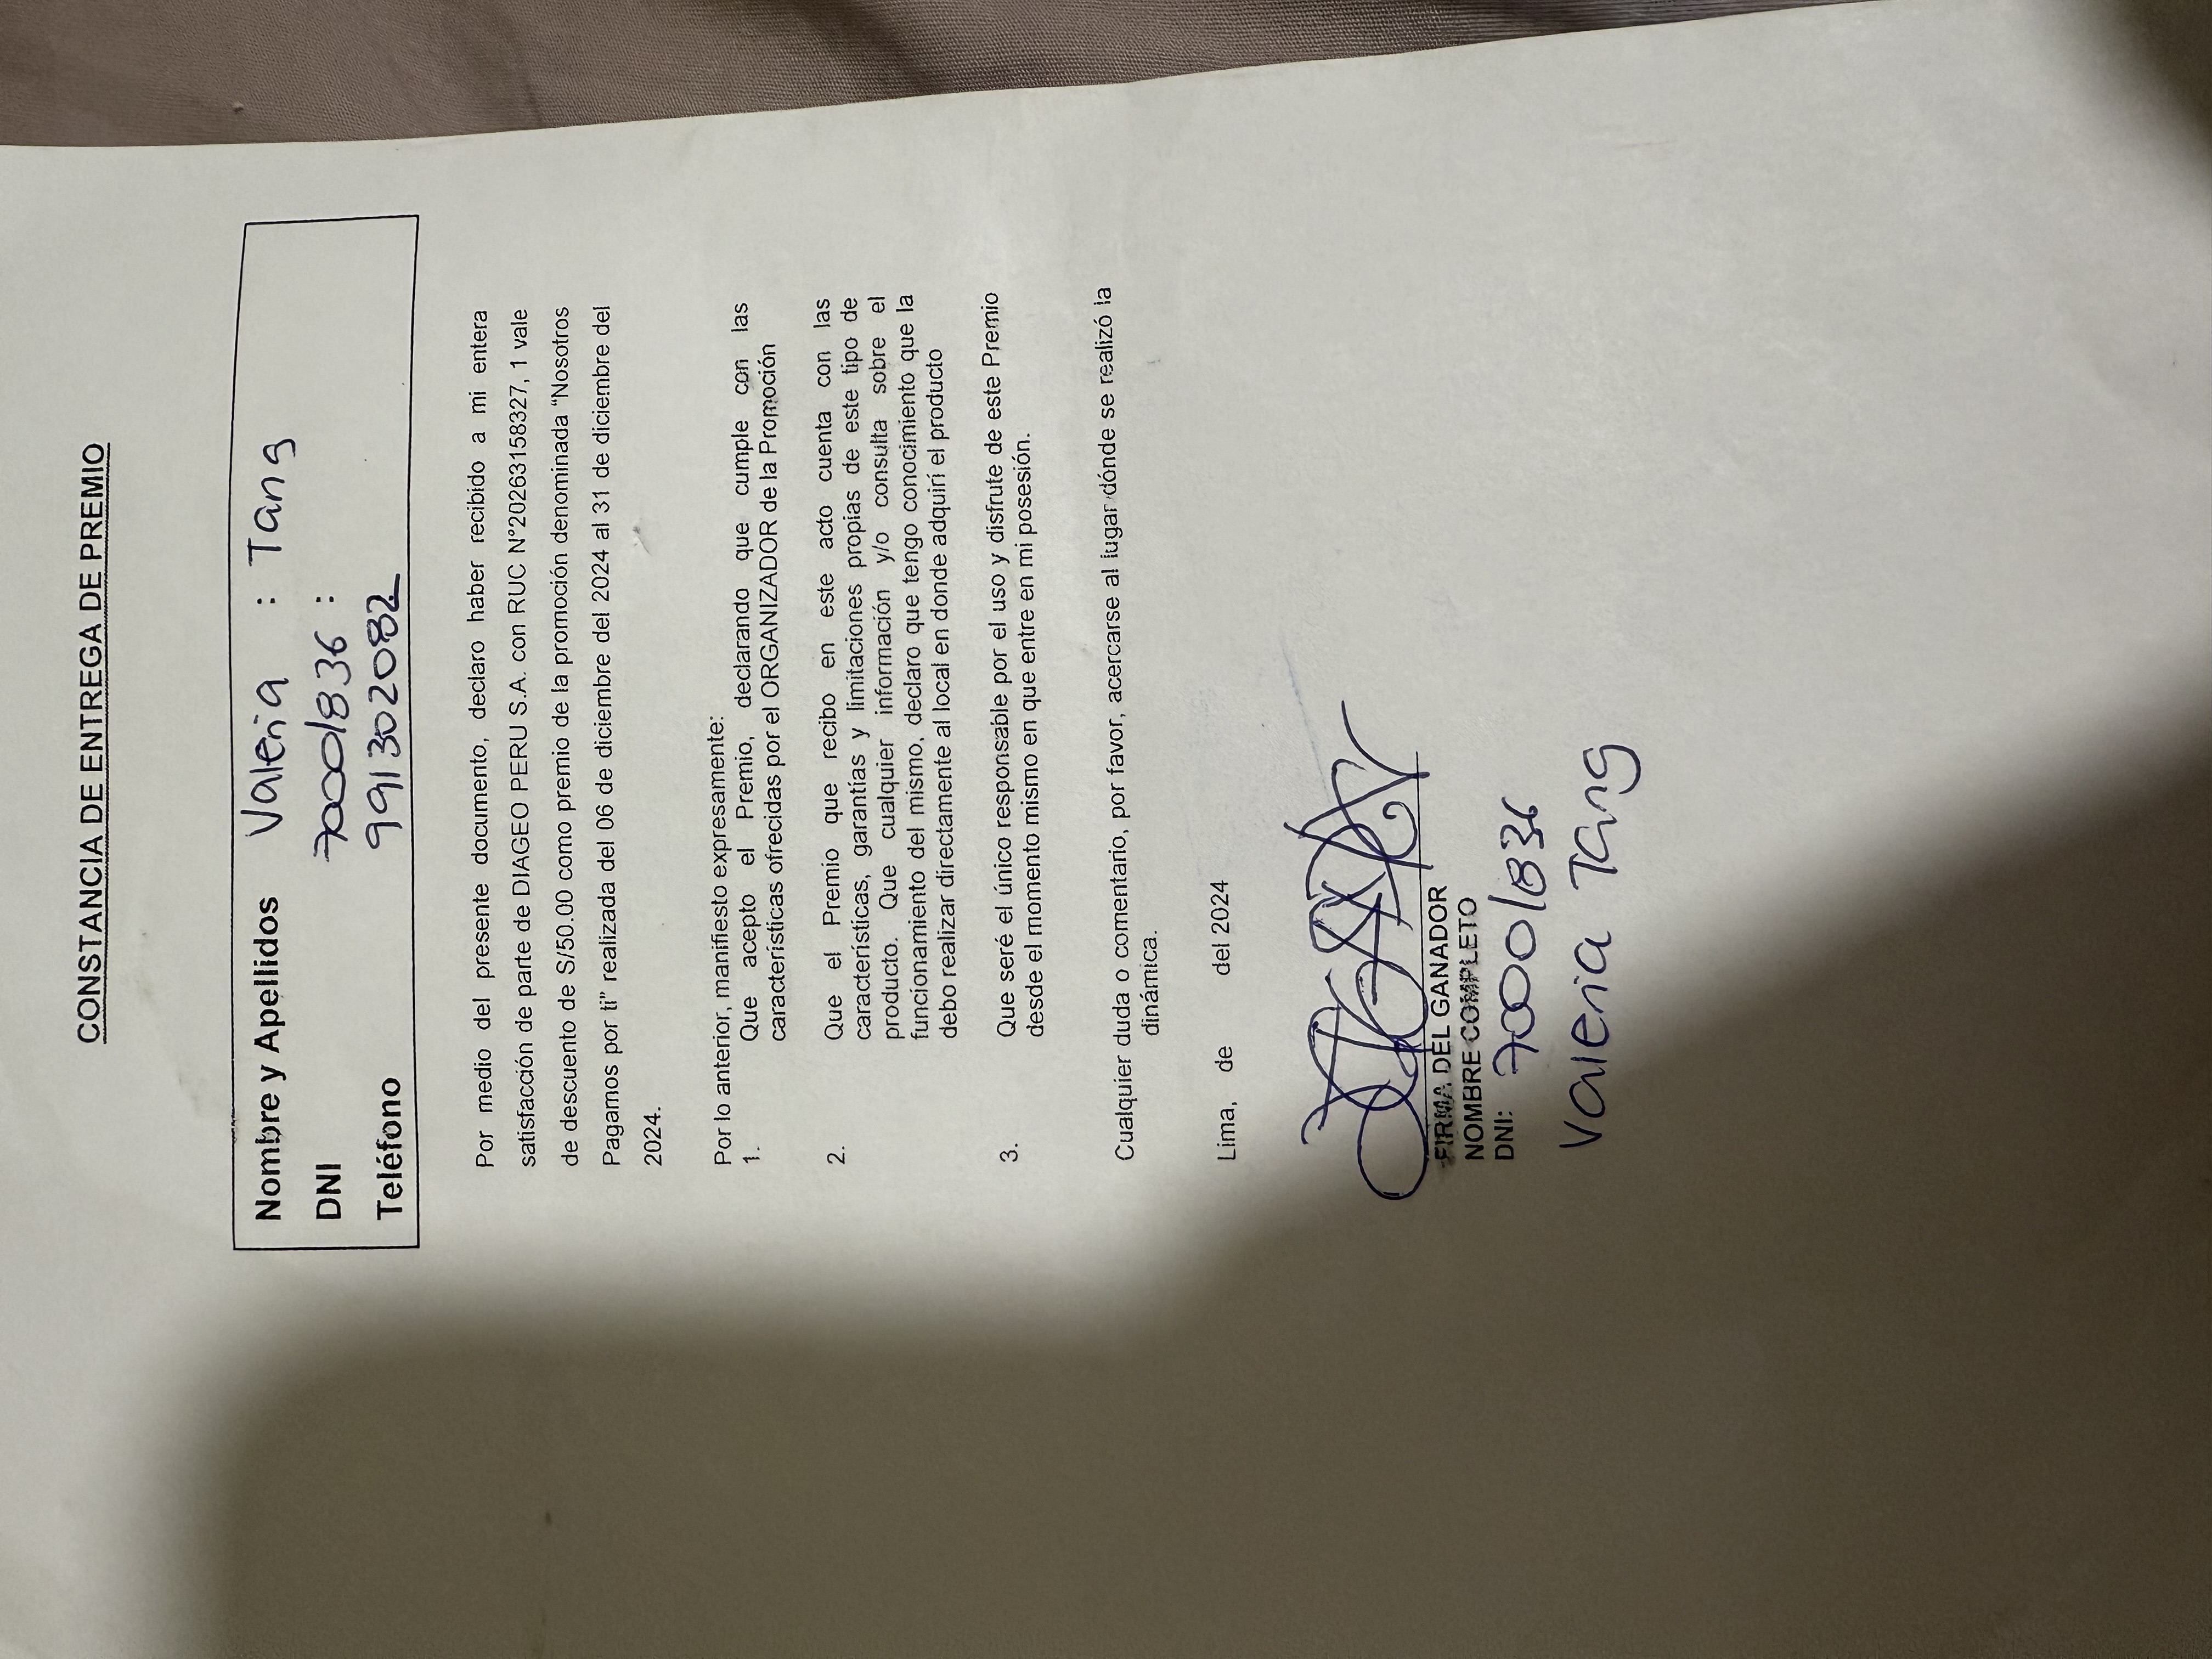 CONSTANCIA DE ENTREGA DE PREMIO
Nombre y Apellidos Valeria : Tang
DNI 70001836 :
Teléfono 991302082
Por medio del presente documento, declaro haber recibido a mi entera
satisfacción de parte de DIAGEO PERU S.A. con RUC N°20263158327, 1 vale
de descuento de S/50.00 como premio de la promoción denominada “Nosotros
Pagamos por ti” realizada del 06 de diciembre del 2024 al 31 de diciembre del
2024.
Por lo anterior, manifiesto expresamente:
1. Que acepto el Premio, declarando que cumple con las
características ofrecidas por el ORGANIZADOR de la Promoción
2. Que el Premio que recibo en este acto cuenta con las
características, garantías y limitaciones propias de este tipo de
producto. Que cualquier información y/o consulta sobre el
funcionamiento del mismo, declaro que tengo conocimiento que la
debo realizar directamente al local en donde adquirí el producto
3. Que seré el único responsable por el uso y disfrute de este Premio
desde el momento mismo en que entre en mi posesión.
Cualquier duda o comentario, por favor, acercarse al lugar dónde se realizó la
dinámica.
Lima, de del 2024
FIRMA DEL GANADOR
NOMBRE COMPLETO
DNI: 70001836
Valeria Tang